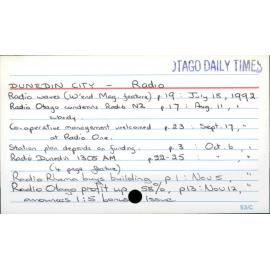 OTAGO DAILY TIMES
DUNEDIN CITY - Radio
Radio waves (W'end Mag. feature) p.19 : July 18, 1992
Radio Otago condemns Radio NZ p.17 : Aug. 11, "
subsidy.
Co-operative management welcomed p.23 : Sept. 17, "
at Radio One.
Station plan depends on funding. p.3 : Oct. 6, "
Radio Dunedin 1305 AM p22-25 : "
(4 page feature)
Radio Rhema buys building p.1 : Nov 5, "
Radio Otago profit up 58%, p13: Nov 12, "
announces 1:5 bonus issue